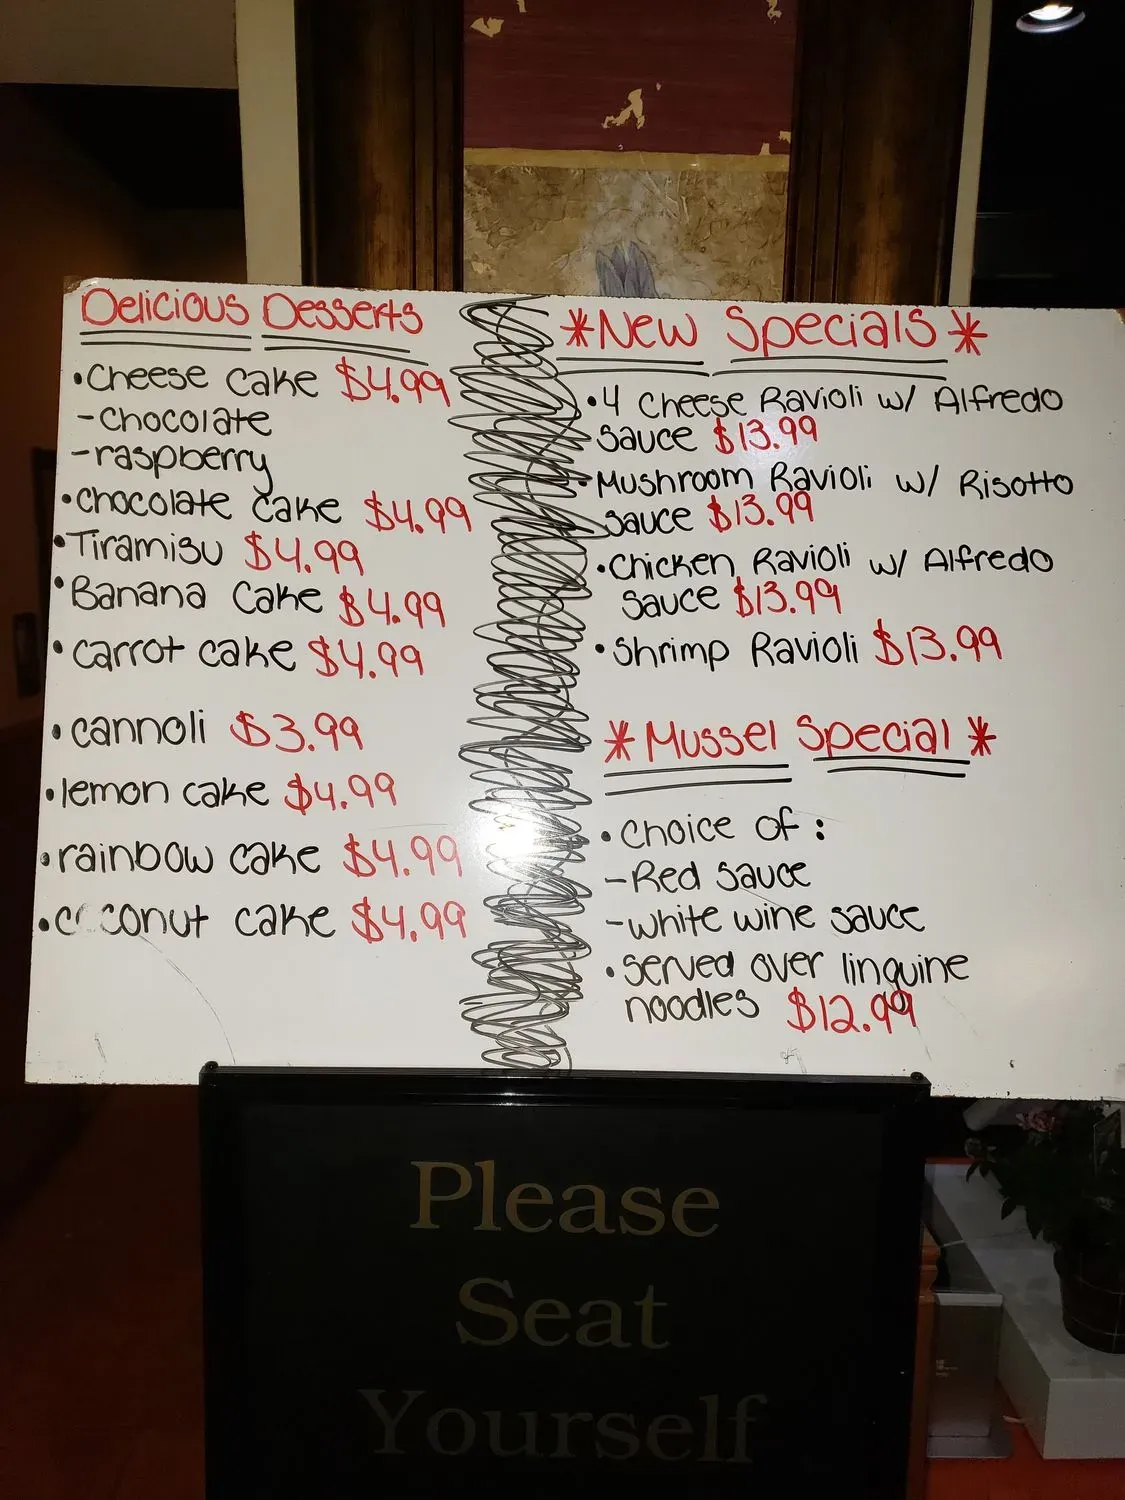 Delicious Desserts
•Cheese cake $4.99
-chocolate
-raspberry
•chocolate cake $4.99
•Tiramisu $4.99
•Banana Cake $4.99
•carrot cake $4.99
•cannoli $3.99
•lemon cake $4.99
•rainbow cake $4.99
•coconut cake $4.99
*New Specials*
•4 Cheese Ravioli w/ Alfredo
sauce $13.99
•Mushroom Ravioli w/ Risotto
sauce $13.99
•Chicken Ravioli w/ Alfredo
sauce $13.99
•Shrimp Ravioli $13.99
*Mussel Special*
•Choice of:
-Red Sauce
-white wine sauce
•served over linguine
noodles $12.99
Please
Seat
Yourself